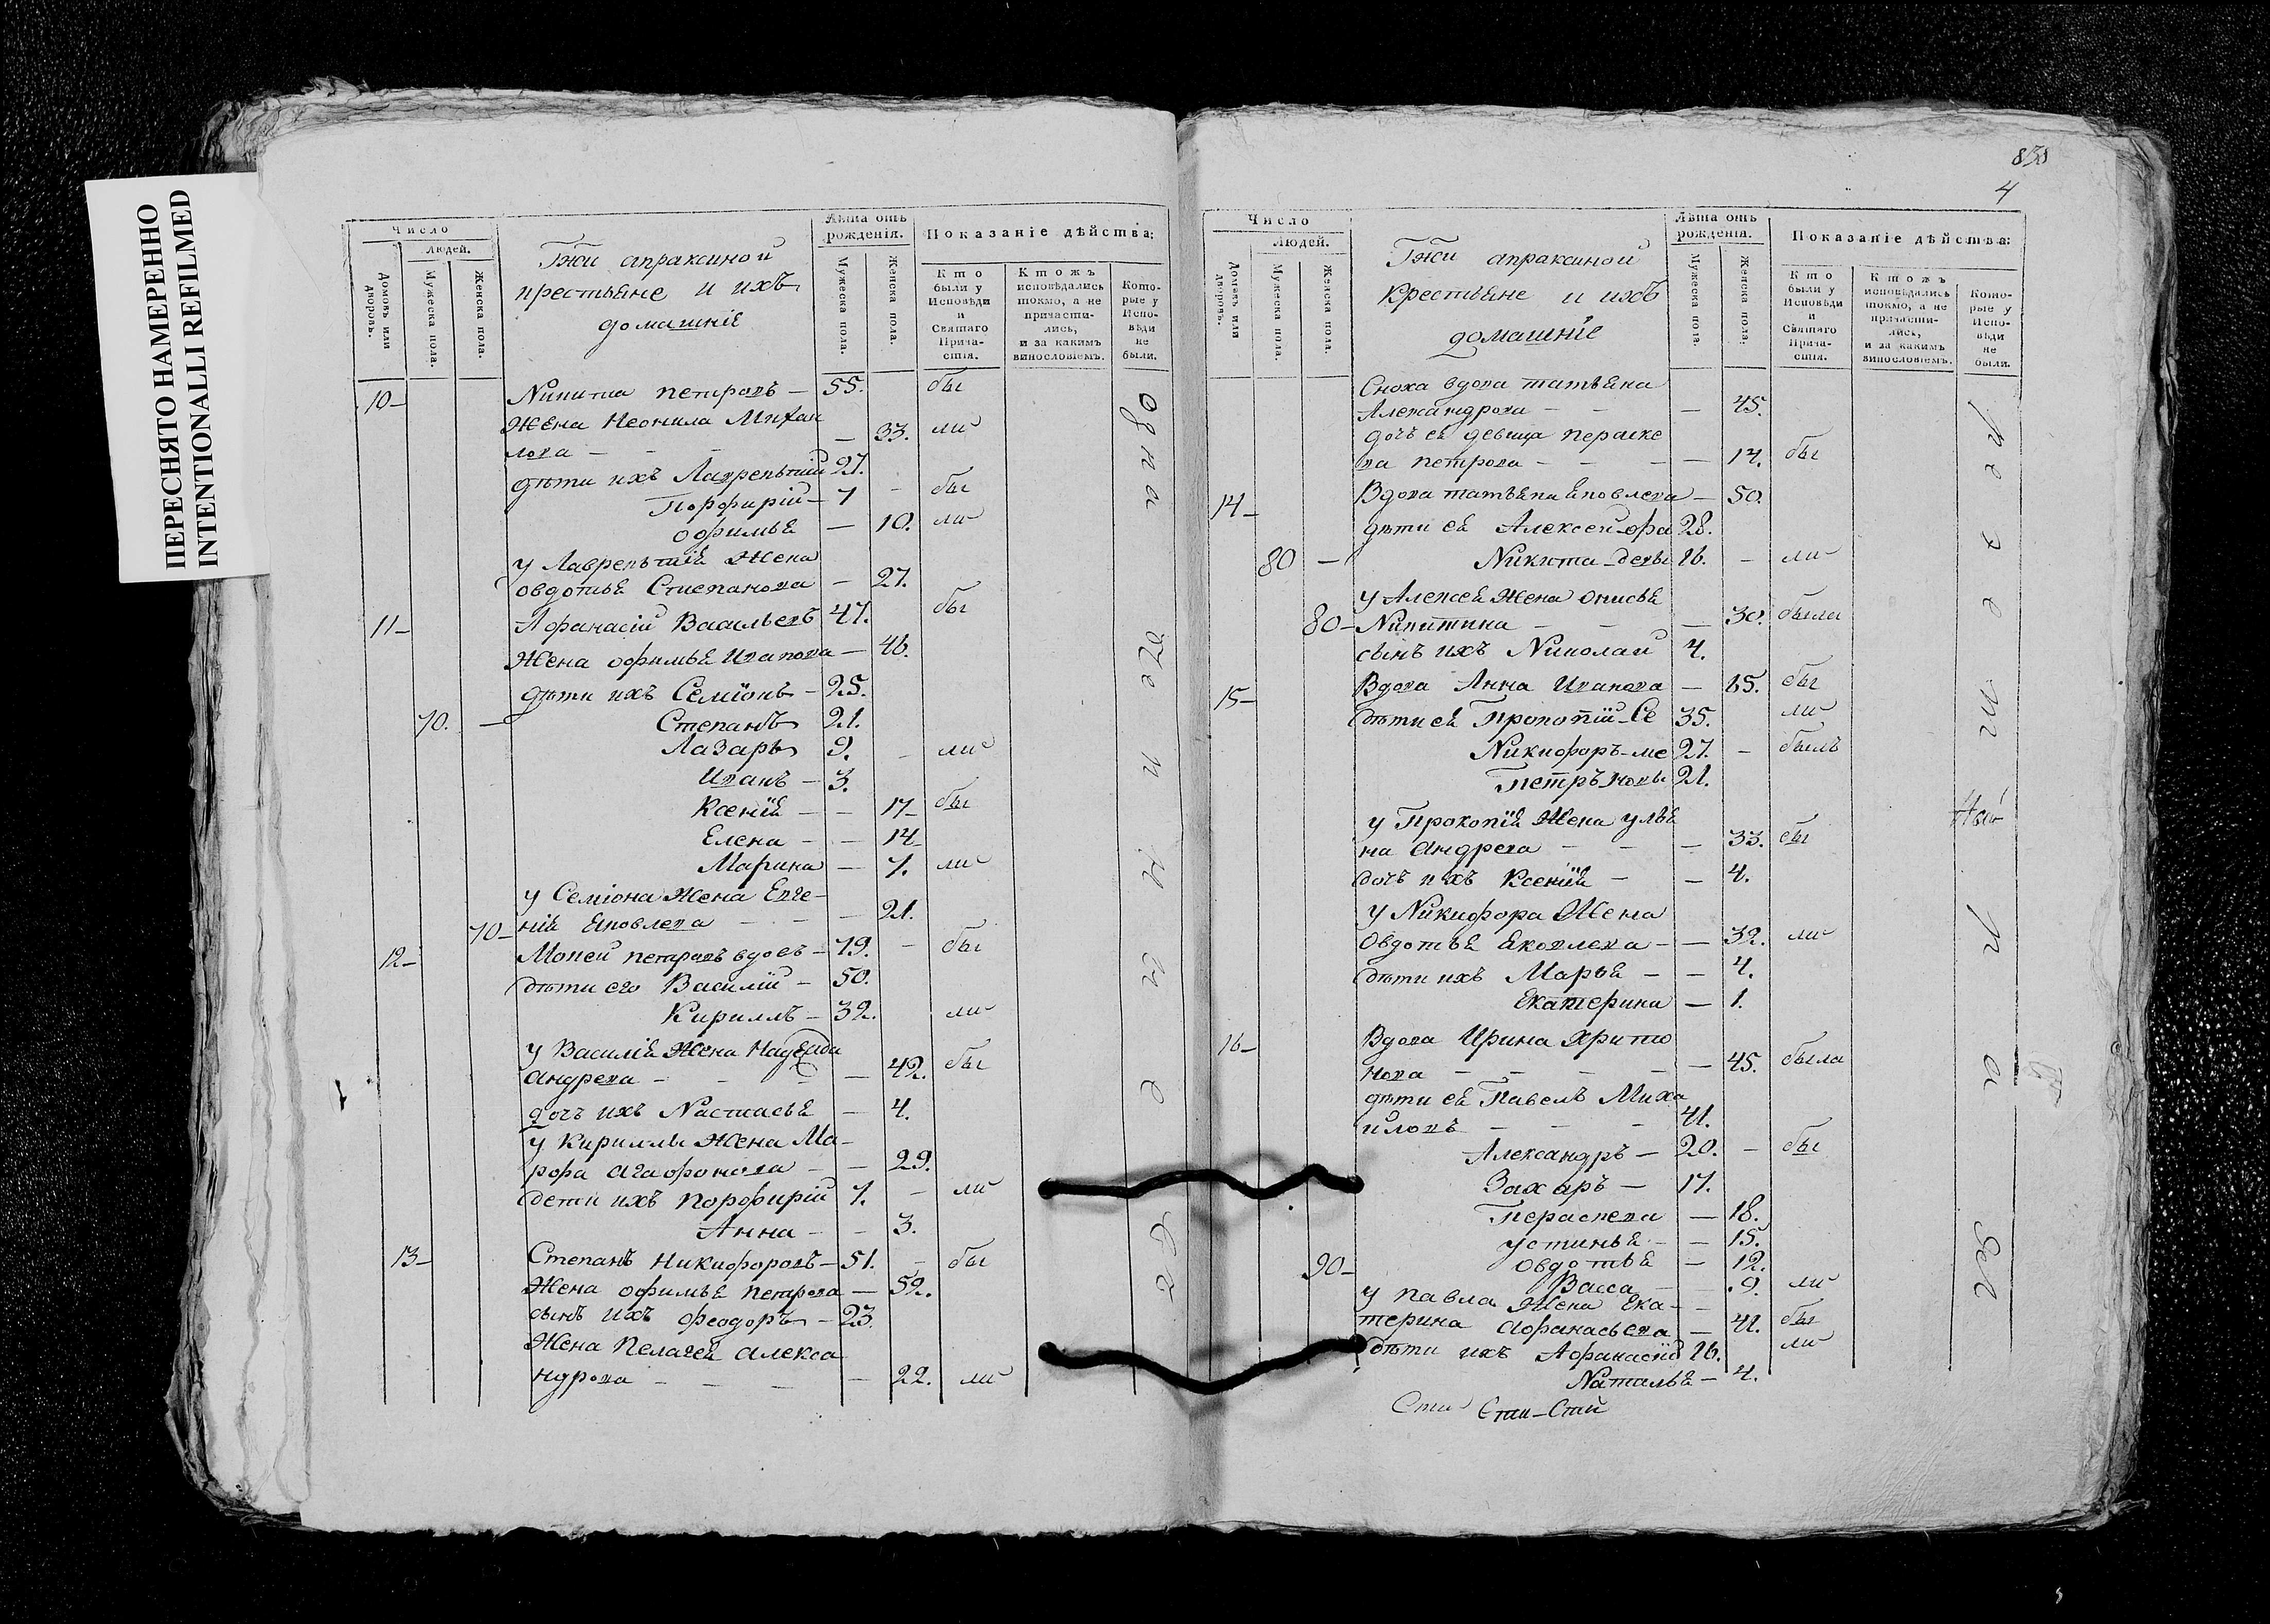 ПЕРЕСНЯТО НАМЕРЕННО
INTENTIONALLI REFILMED
Число
Людей.
Домовъ или дворовъ.
Мужеска пола.
Женска пола.
Гжи апраксиной
крестьяне и ихъ
домашнiе
Лѣта отъ рожденiя.
Мужеска пола.
Женска пола.
Показанiе дѣйства:
Кто были у Исповѣди и Святаго Прича-стiя.
Ктожъ исповѣдались токмо, а не причасти-лись, и за какимъ винословiемъ.
Кото-рые у Испо-вѣди не были.
10 – Никита петровъ – 55. бы
Жена Неонила Михаи
лова – – 33. ли
дѣти ихъ Лаврентiй 27.
Порфирiй – 7 – бы
офимья – 10. ли
у Лаврентiя Жена
овдотья Степанова – 27.
11 – Афанасiй Васильевъ 47. бы
Жена офимья Иванова – 46.
дѣти ихъ Семiонъ – 25.
70. – Степанъ 21.
Лазарь 9. – ли
Иванъ – 3.
Ксенiя – – 17 – бы
Елена – – 14
Марина – 7. ли
у Семiона Жена Евге-
70 – нiя яковлева – – 21.
12 – Мокей петровъ вдовъ – 79. – бы
дѣти его Василiй – 50.
Кириллъ – 32. ли
у Василiя Жена Надежда
андрева – – – 42. бы
дочь ихъ Настасья – 4.
у Кириллы Жена Ма-
рфа агафонова – – 29.
дети ихъ порфирiй 7. – ли
Анна – – 3.
13 – Степанъ Никифоровъ – 51. – бы
Жена офимья петрова – 52.
сынъ ихъ феодоръ – 23.
Жена Пелагея алекса
ндрова – – – – 22. ли
838
4
Число
Людей.
Домовъ или дворовъ.
Мужеска пола.
Женска пола.
Гжи апраксиной
крестьяне и ихъ
домашнiе
Лѣта отъ рожденiя.
Мужеска пола.
Женска пола.
Показанiе дѣйства:
Кто были у Исповѣди и Святаго Прича-стiя.
Ктожъ исповѣдались токмо, а не причасти-лись, и за какимъ винословiемъ.
Кото-рые у Испо-вѣди не были.
Сноха вдова татьяна
Александрова – – – 45.
дочь ея девица параске
ва петрова – – – 14. бы
14 – Вдова татьяна яковлева – 50.
дѣти ея Алексей 28.
80 – Никита 16. – ли
у Алексея Жена онисья
80 – Никитина – – 30. была
сынъ ихъ Николай 4.
15 – Вдова Анна Иванова – 65. бы
дѣти ея Прокопiй Се 35. ли
Никифоръ ме 27. – былъ
Петръ новы 21.
у Прокопiя Жена улья
на Андрева – – – 33. бы
дочь ихъ Ксенiя – – 4.
у Никифора Жена
Овдотья Яковлева – – 32. ли
дѣти ихъ Марья – – 4.
Екатерина – 1.
16 – Вдова Ирина Харито
нова – – – – 45. была
дѣти ея Павелъ Миха
иловъ – – – 41.
Александръ – 20. – бы
Захаръ – 17.
Параскева – 18.
устинья – – 15.
90 – овдотья – 12.
Васса – – 9. ли
у павла Жена Ека-
терина афанасьева – 41. бы
дѣти ихъ Афанасiй 16. ли
Наталья – 4.